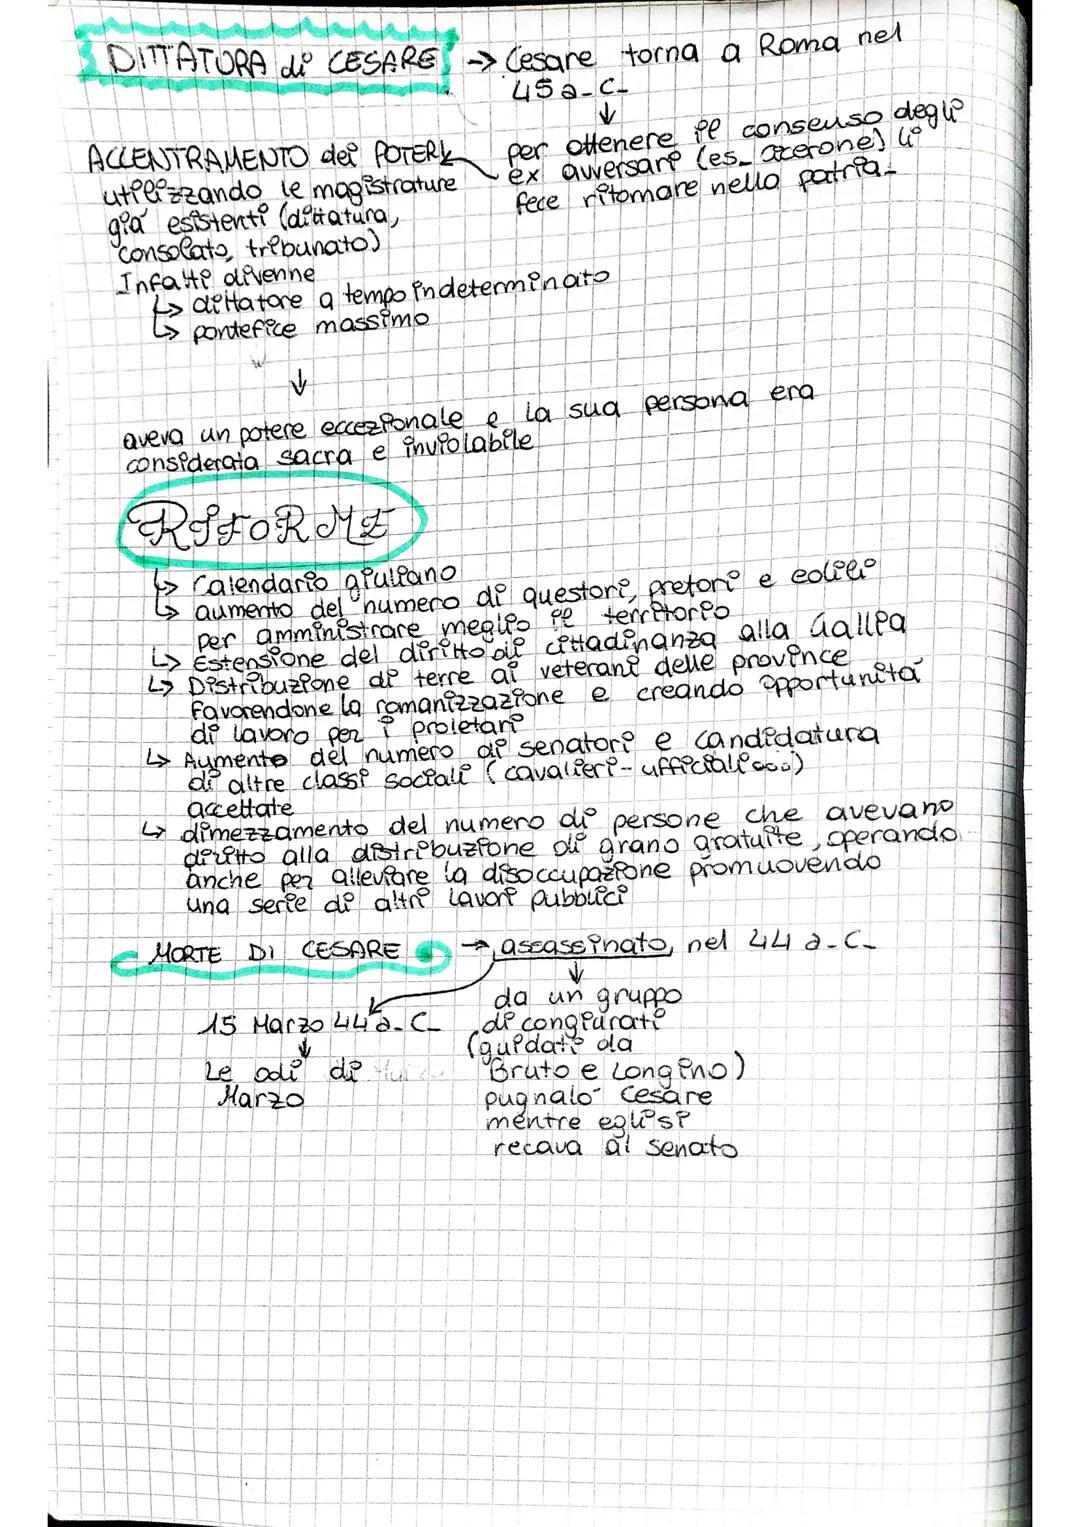 DITTATURA di CESARE → Cesare torna a Roma nel
45 a.C.
↓
per ottenere il consenso degli
ex avversari (es. Cicerone) li
fece ritornare nella patria.
ACCENTRAMENTO dei POTERI
utilizzando le magistrature
già esistenti (dittatura,
consolato, tribunato)
Infatti divenne
↳ dittatore a tempo indeterminato
↳ pontefice massimo
↓
aveva un potere eccezionale e la sua persona era
considerata sacra e inviolabile
RIFORME
↳ Calendario giuliano
↳ aumento del numero di questori, pretori e edili
per amministrare meglio il territorio
↳ Estensione del diritto di cittadinanza alla Gallia
↳ Distribuzione di terre ai veterani delle province
favorendone la romanizzazione e creando opportunità
di lavoro per i proletari
↳ Aumento del numero di senatori e candidatura
di altre classi sociali (cavalieri - ufficiali...)
accettate
↳ dimezzamento del numero di persone che avevano
diritto alla distribuzione di grano gratuite, operando
anche per alleviare la disoccupazione promuovendo
una serie di altri lavori pubblici
MORTE DI CESARE → assassinato, nel 44 a.C.
↓
da un gruppo
di congiurati
(guidati da
Bruto e Longino)
pugnalò Cesare
mentre egli si
recava al senato
15 Marzo 44 a.C.
↓
Le odi di
Marzo